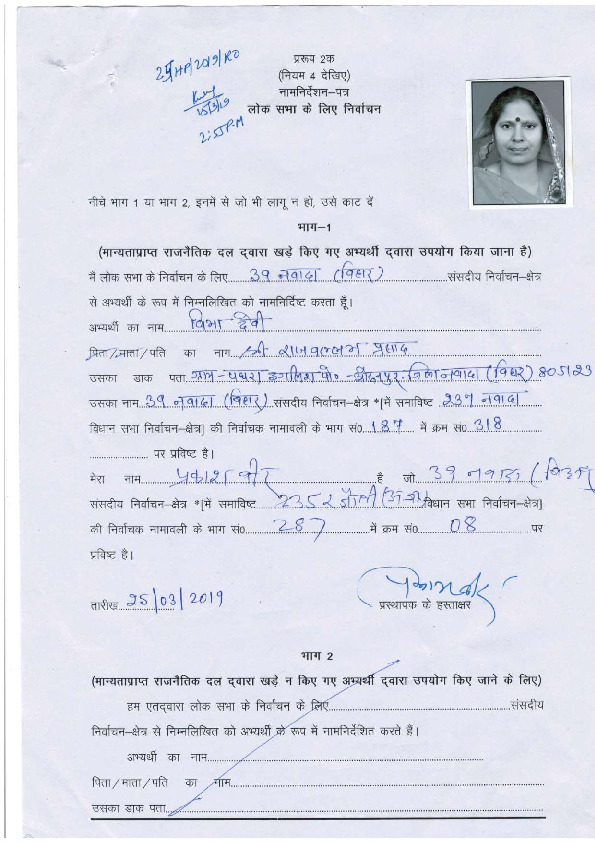 प्ररूप 2क
(नियम 4 देखिए)
नामनिर्देशन–पत्र
लोक सभा के लिए निर्वाचन
2:55 P.M
नीचे भाग 1 या भाग 2, इनमें से जो भी लागू न हो, उसे काट दें
भाग–1
(मान्यताप्राप्त राजनैतिक दल द्वारा खड़े किए गए अभ्यर्थी द्वारा उपयोग किया जाना है)
मैं लोक सभा के निर्वाचन के लिए 39 नवादा (बिहार) संसदीय निर्वाचन–क्षेत्र
से अभ्यर्थी के रूप में निम्नलिखित को नामनिर्दिष्ट करता हूँ।
अभ्यर्थी का नाम विभा देवी
पिता/माता/पति का नाग श्री राजवल्लभ प्रसाद
उसका डाक पता ग्राम–पथरा इंगलिश पो०– जिला नवादा (बिहार) 805123
उसका नाम 39 नवादा (बिहार) संसदीय निर्वाचन–क्षेत्र *[में समाविष्ट 237 नवादा
विधान सभा निर्वाचन–क्षेत्र] की निर्वाचक नामावली के भाग सं0 187 में क्रम सं0 318
पर प्रविष्ट है।
मेरा नाम प्रकाश वीर है जो 39 नवादा (बिहार)
संसदीय निर्वाचन–क्षेत्र *[में समाविष्ट 235 रजौली (अ०जा०) विधान सभा निर्वाचन–क्षेत्र]
की निर्वाचक नामावली के भाग सं0 287 में क्रम सं0 08 पर
प्रविष्ट है।
तारीख 25/03/2019
प्रस्थापक के हस्ताक्षर
भाग 2
(मान्यताप्राप्त राजनैतिक दल द्वारा खड़े न किए गए अभ्यर्थी द्वारा उपयोग किए जाने के लिए)
हम एतद्वारा लोक सभा के निर्वाचन के लिए संसदीय
निर्वाचन–क्षेत्र से निम्नलिखित को अभ्यर्थी के रूप में नामनिर्देशित करते हैं।
अभ्यर्थी का नाम
पिता/माता/पति का नाम
उसका डाक पता